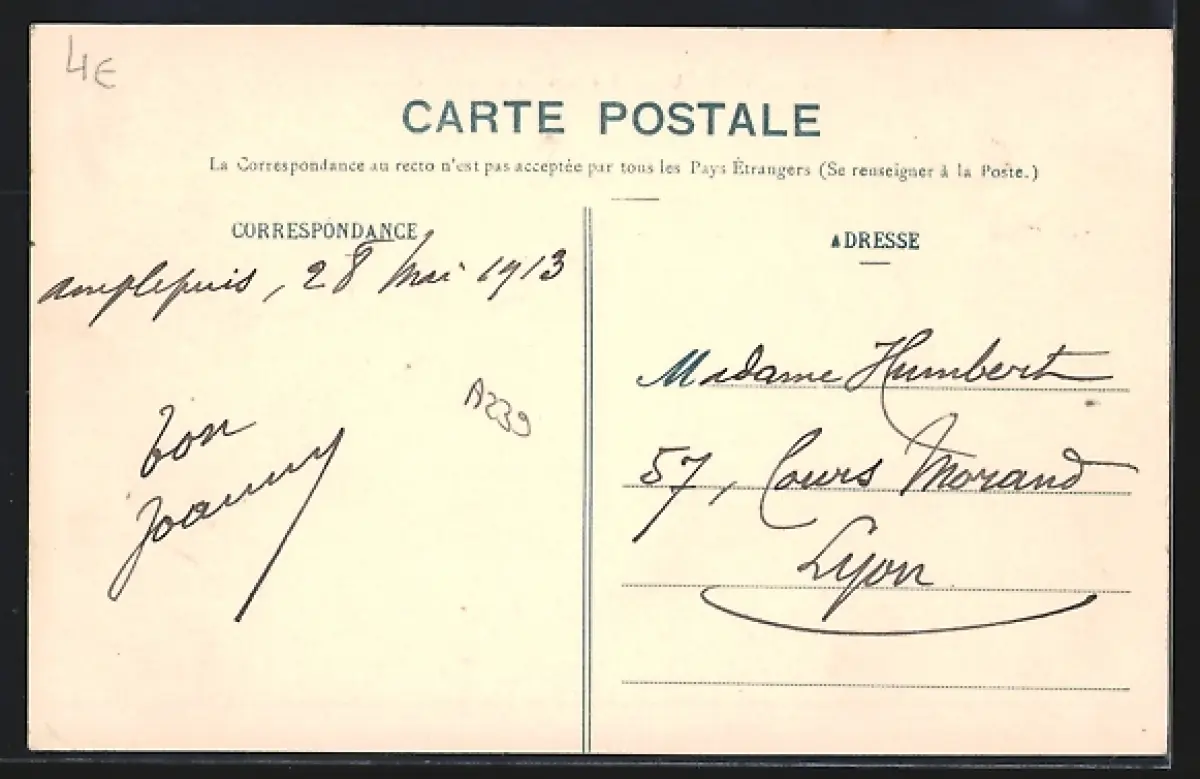 4€
CARTE POSTALE
La Correspondance au recto n'est pas acceptée par tous les Pays Étrangers (Se renseigner à la Poste.)
CORRESPONDANCE
amplepuis, 28 Mai 1913
A239
ton
Joanny
ADRESSE
Madame Humbert
57, Cours Morand
Lyon